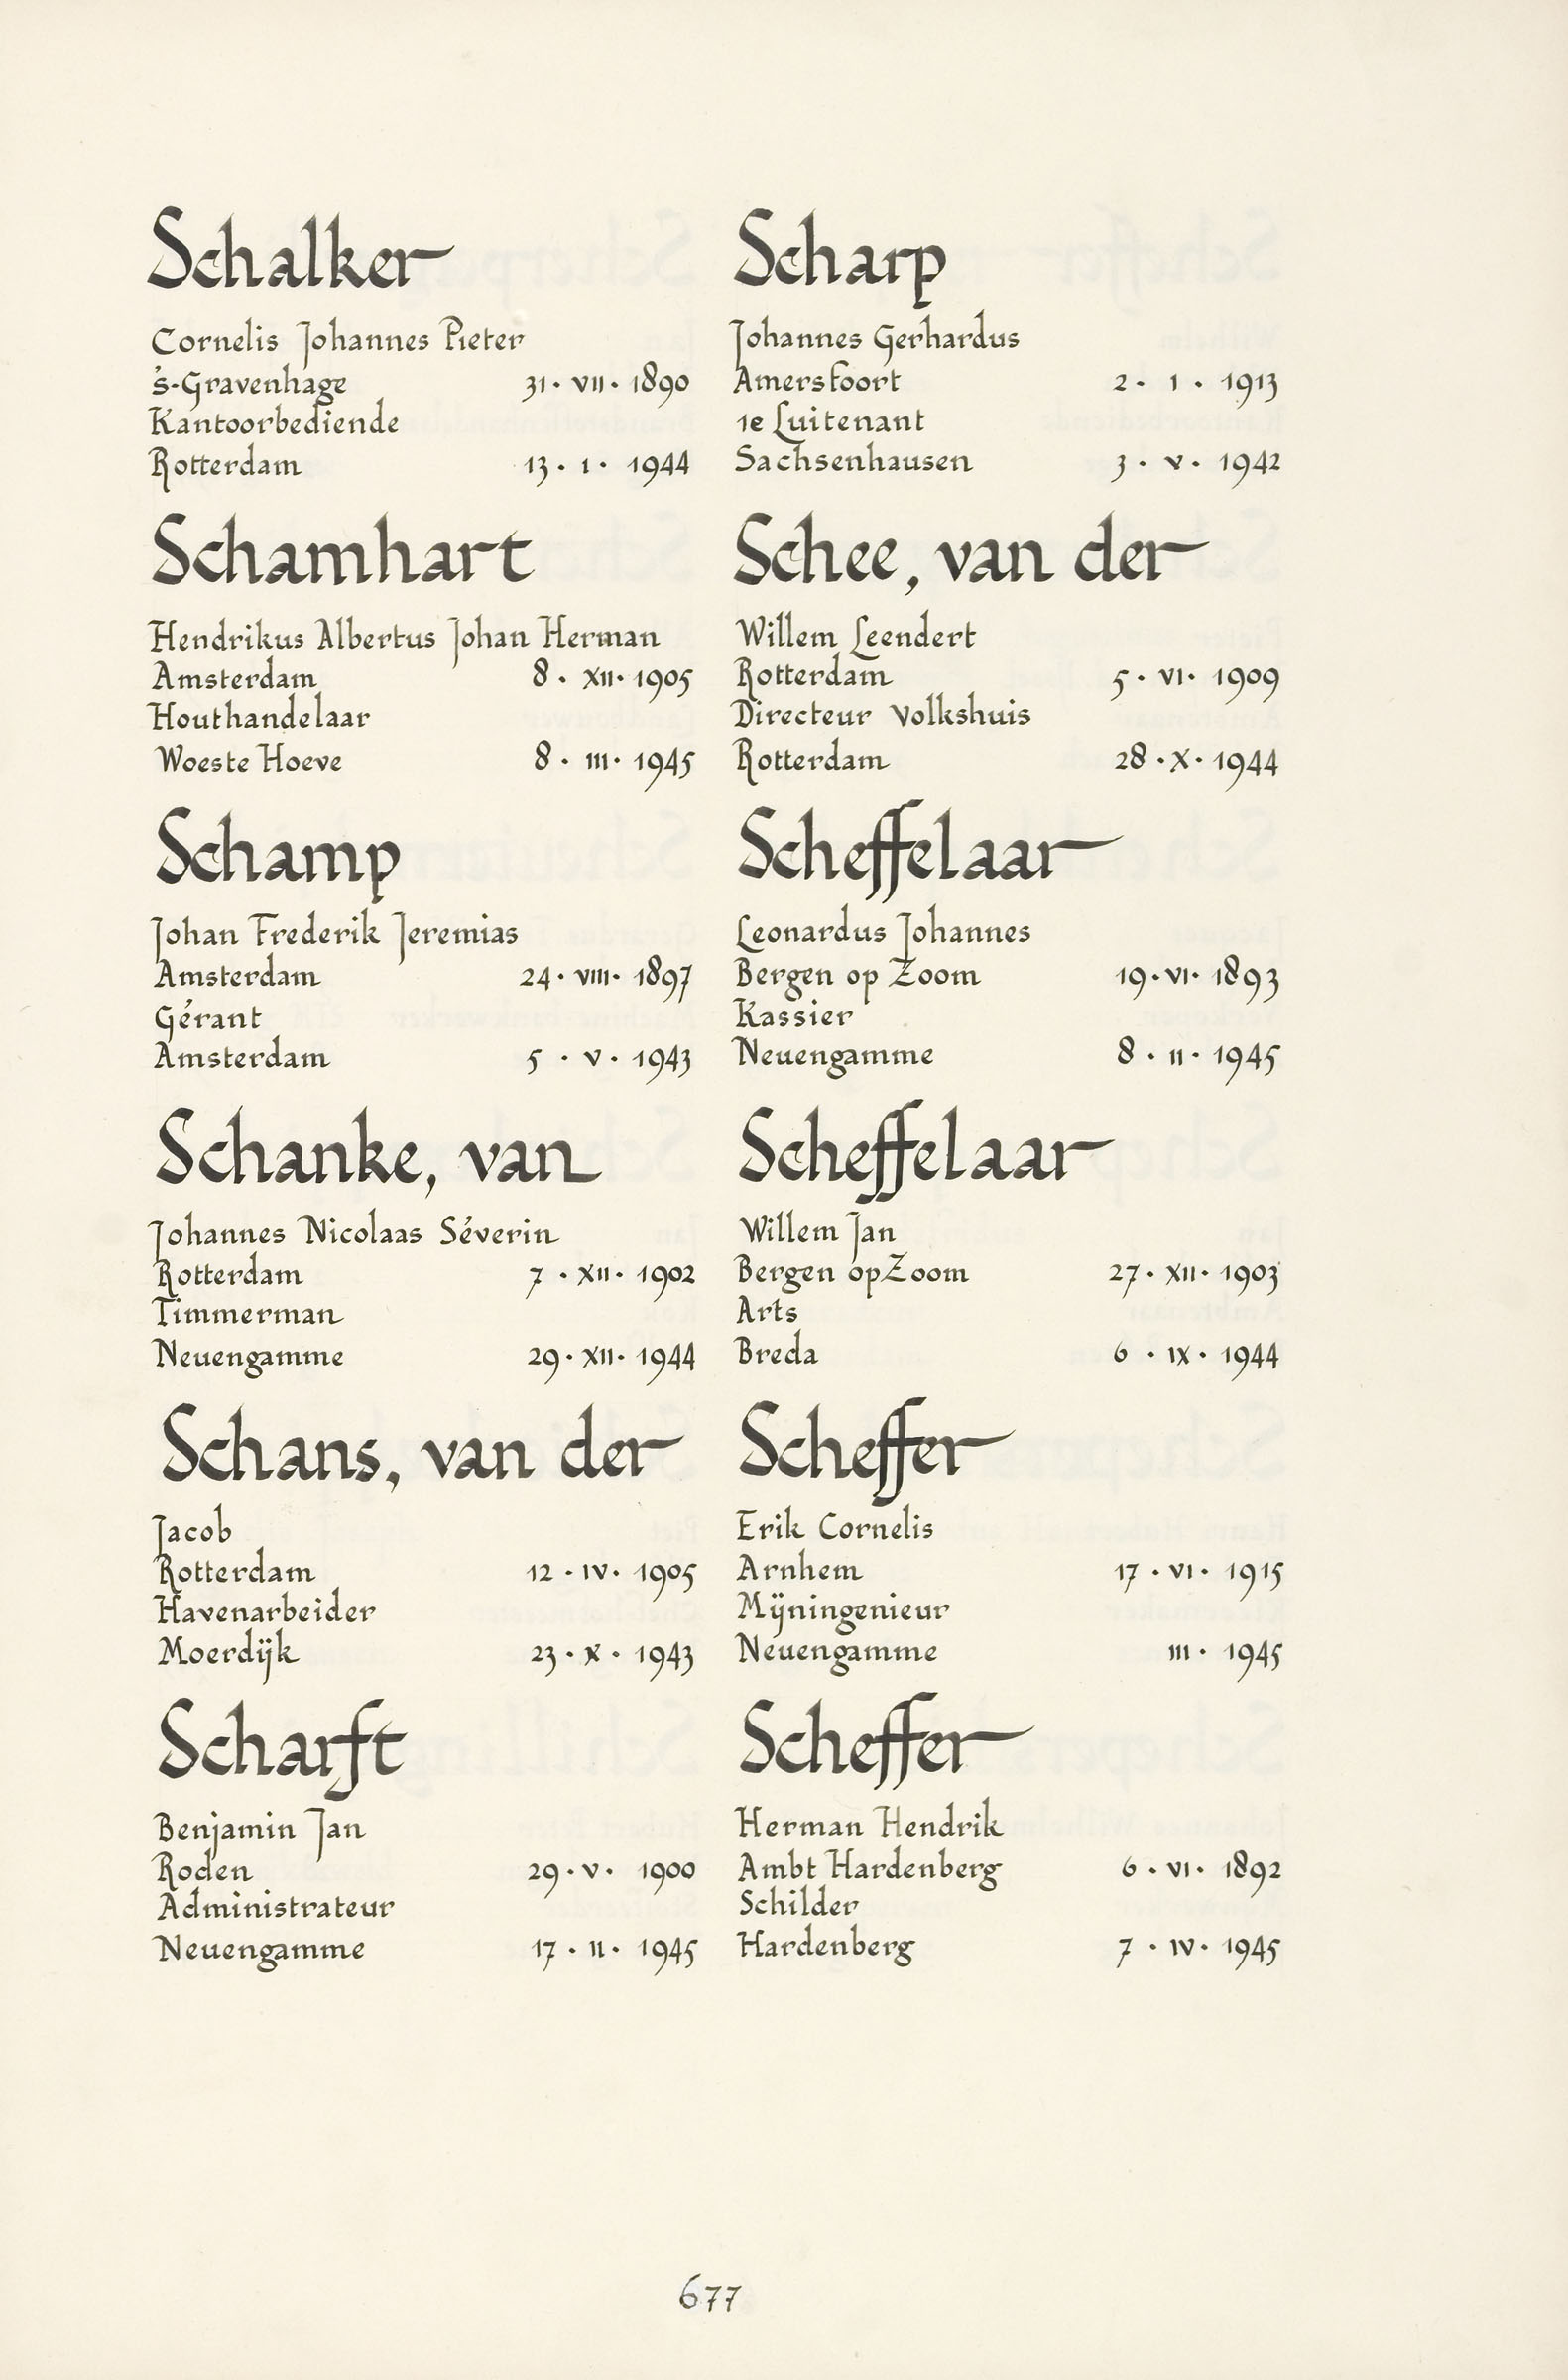 Schalker
Cornelis Johannes Pieter
's-Gravenhage 31 · VII · 1890
Kantoorbediende
Rotterdam 13 · I · 1944
Schamhart
Hendrikus Albertus Johan Herman
Amsterdam 8 · XII · 1905
Houthandelaar
Woeste Hoeve 8 · III · 1945
Schamp
Johan Frederik Jeremias
Amsterdam 24 · VIII · 1897
Gérant
Amsterdam 5 · V · 1943
Schanke, van
Johannes Nicolaas Séverin
Rotterdam 7 · XII · 1902
Timmerman
Neuengamme 29 · XII · 1944
Schans, van der
Jacob
Rotterdam 12 · IV · 1905
Havenarbeider
Moerdijk 23 · X · 1943
Scharft
Benjamin Jan
Roden 29 · V · 1900
Administrateur
Neuengamme 17 · II · 1945
Scharp
Johannes Gerhardus
Amersfoort 2 · I · 1913
1e Luitenant
Sachsenhausen 3 · V · 1942
Schee, van der
Willem Leendert
Rotterdam 5 · VI · 1909
Directeur Volkshuis
Rotterdam 28 · X · 1944
Scheffelaar
Leonardus Johannes
Bergen op Zoom 19 · VI · 1893
Kassier
Neuengamme 8 · II · 1945
Scheffelaar
Willem Jan
Bergen op Zoom 27 · XII · 1903
Arts
Breda 6 · IX · 1944
Scheffer
Erik Cornelis
Arnhem 17 · VI · 1915
Mijningenieur
Neuengamme III · 1945
Scheffer
Herman Hendrik
Ambt Hardenberg 6 · VI · 1892
Schilder
Hardenberg 7 · IV · 1945
677